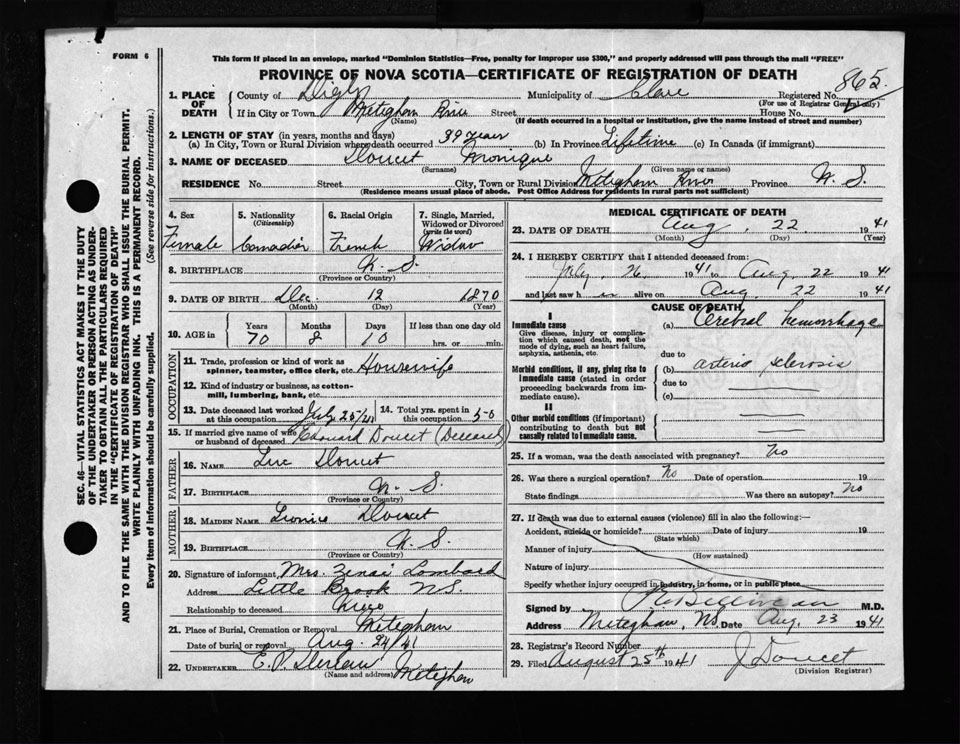 FORM 6
This form if placed in an envelope, marked "Dominion Statistics—Free, penalty for improper use $300," and properly addressed will pass through the mail "FREE"
PROVINCE OF NOVA SCOTIA—CERTIFICATE OF REGISTRATION OF DEATH
SEC. 46—VITAL STATISTICS ACT MAKES IT THE DUTY
OF THE UNDERTAKER OR PERSON ACTING AS UNDER-
TAKER TO OBTAIN ALL THE PARTICULARS REQUIRED
IN THE "CERTIFICATE OF REGISTRATION OF DEATH"
AND TO FILE THE SAME WITH THE DIVISION REGISTRAR WHO SHALL ISSUE THE BURIAL PERMIT.
WRITE PLAINLY WITH UNFADING INK. THIS IS A PERMANENT RECORD.
Every item of information should be carefully supplied. (See reverse side for instructions.)
1. PLACE OF DEATH
County of Digby Municipality of Clare Registered No. 865
(For use of Registrar General only)
If in City or Town Meteghan River Street House No.
(Name) (If death occurred in a hospital or institution, give the name instead of street and number)
2. LENGTH OF STAY (in years, months and days)
(a) In City, Town or Rural Division where death occurred 39 years (b) In Province Lifetime (c) In Canada (if immigrant)
3. NAME OF DECEASED Doucet Monique
(Surname) (Given name or names)
RESIDENCE No. Street City, Town or Rural Division Meteghan River Province N. S.
(Residence means usual place of abode. Post Office Address for residents in rural parts not sufficient)
4. Sex Female
5. Nationality (Citizenship) Canadian
6. Racial Origin French
7. Single, Married, Widowed or Divorced (write the word) Widow
8. BIRTHPLACE N. S.
(Province or Country)
9. DATE OF BIRTH Dec. 12 1870
(Month) (Day) (Year)
10. AGE in Years 70 Months 8 Days 10 If less than one day old hrs. or min.
OCCUPATION
11. Trade, profession or kind of work as spinner, teamster, office clerk, etc. Housewife
12. Kind of industry or business, as cotton-
mill, lumbering, bank, etc.
13. Date deceased last worked at this occupation July 25/41 14. Total yrs. spent in this occupation 50
15. If married give name of wife or husband of deceased Edouard Doucet (Deceased)
FATHER
16. NAME Luc Doucet
17. BIRTHPLACE N. S.
(Province or Country)
MOTHER
18. MAIDEN NAME Leonice Doucet
19. BIRTHPLACE N. S.
(Province or Country)
20. Signature of informant Mrs. Zenai Lombard
Address Little Brook N.S.
Relationship to deceased Niece
21. Place of Burial, Cremation or Removal Meteghan
Date of burial or removal Aug. 24/41
22. UNDERTAKER E. P. Meteghan
(Name and address)
MEDICAL CERTIFICATE OF DEATH
23. DATE OF DEATH Aug. 22 1941
(Month) (Day) (Year)
24. I HEREBY CERTIFY that I attended deceased from:
July 26 1941 to Aug 22 1941
and last saw h alive on Aug. 22 1941
CAUSE OF DEATH
I
Immediate cause
Give disease, injury or complica-
tion which caused death, not the
mode of dying, such as heart failure,
asphyxia, asthenia, etc.
(a) Cerebral hemorrhage
due to
Morbid conditions, if any, giving rise to
immediate cause (stated in order
proceeding backwards from im-
mediate cause).
(b) arterio sclerosis
due to
(c)
II
Other morbid conditions (if important)
contributing to death but not
causally related to immediate cause.
25. If a woman, was the death associated with pregnancy? No
26. Was there a surgical operation? No Date of operation 19
State findings Was there an autopsy? No
27. If death was due to external causes (violence) fill in also the following:—
Accident, suicide or homicide? Date of injury 19
(State which)
Manner of injury
(How sustained)
Nature of injury
Specify whether injury occurred in industry, in home, or in public place
Signed by Belliveau M.D.
Address Meteghan, NS. Date Aug. 23 1941
28. Registrar's Record Number
29. Filed August 25th 1941 J. Doucet
(Division Registrar)